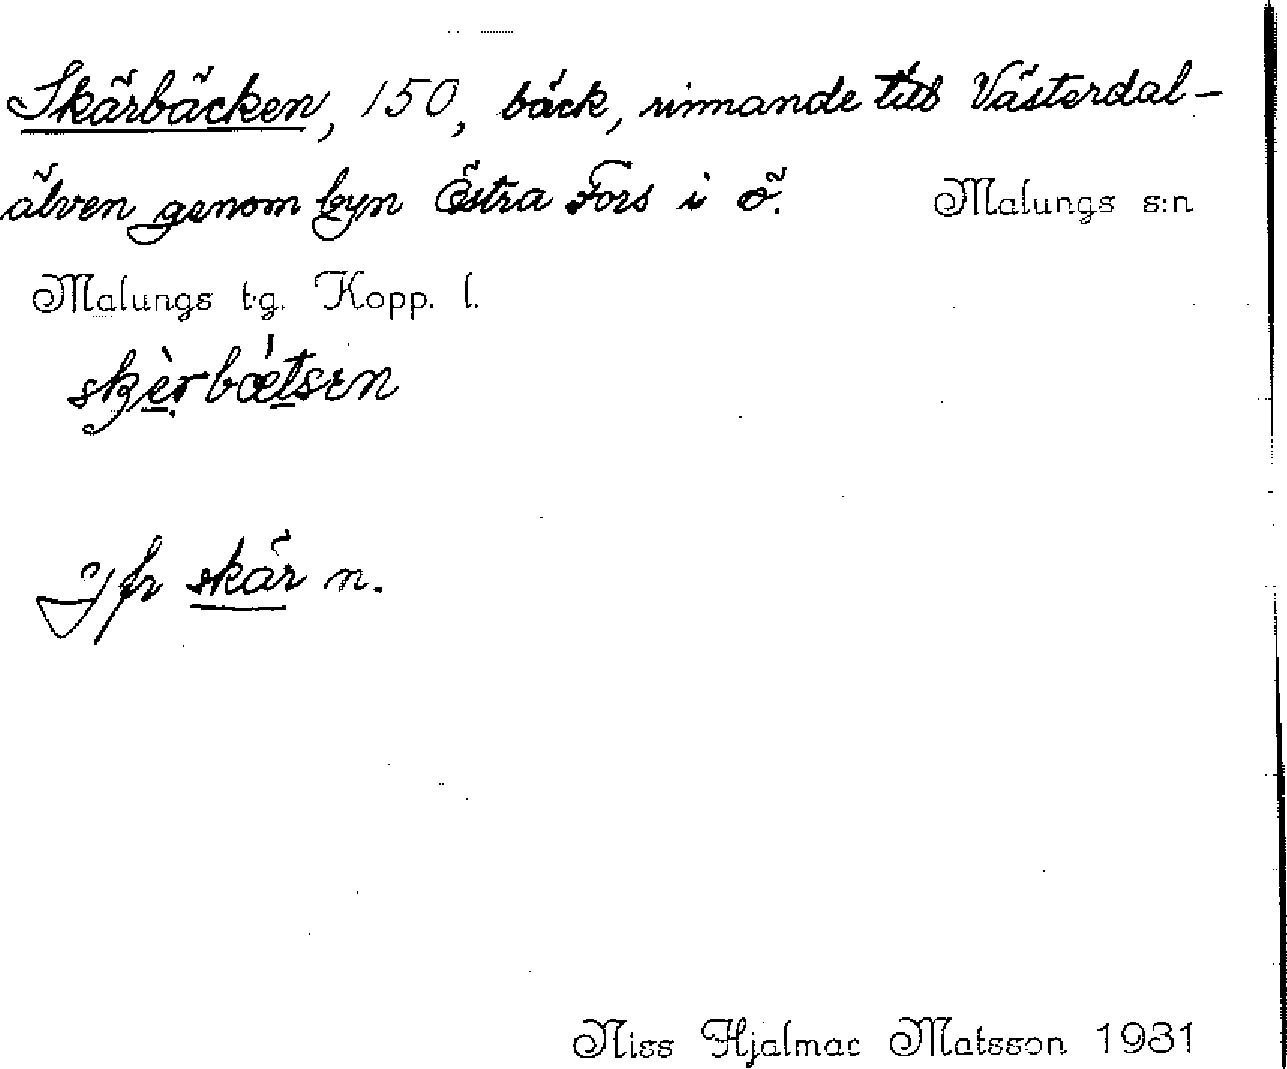 Skärbäcken, 150, bäck, rinnande till Västerdal-
älven genom byn Östra Fors i ö. Malungs s:n
Malungs tg. Kopp. l.
skèrbǽtsen
Jfr skär n.
Niss Hjalmar Matsson 1931